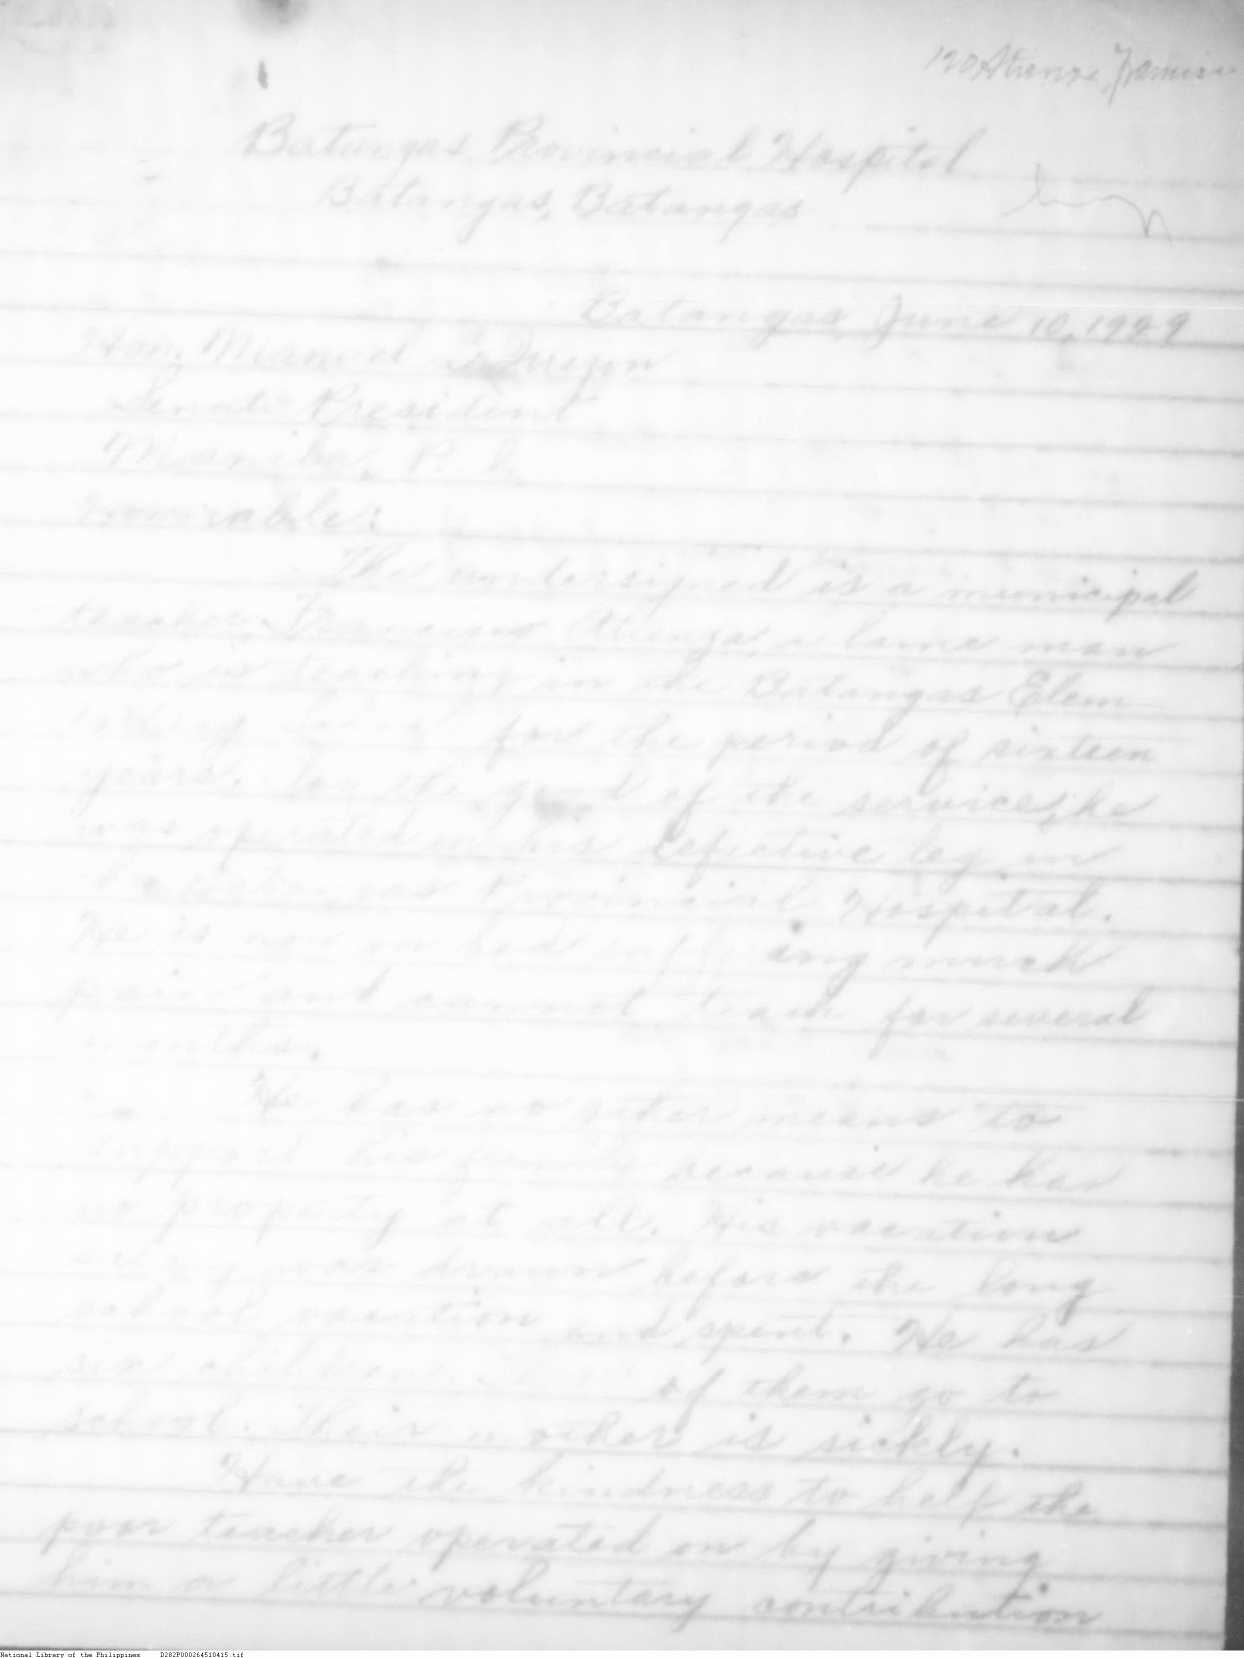 Batangas Provincial Hospital
Batangas, Batangas
Batangas, June 10, 1929
Hon. Manuel L. Quezon
Senate President
Manila, P. I.
Honorable:
The undersigned is a municipal
teacher, Francisco Atienza, a lame man
who is teaching in the Batangas Elem
for the period of sixteen
years. For the good of the service, he
was operated on his defective leg in
Provincial Hospital.
He is now on bed suffering much
pain and cannot teach for several
months.
He has no other means to
support his family because he has
no property at all. His vacation
was drawn before the long
school vacation and spent. He has
six children of them go to
school. Their mother is sickly.
Have the kindness to help the
poor teacher operated on by giving
him a little voluntary contribution
National Library of the Philippines D282P000264510415.tif